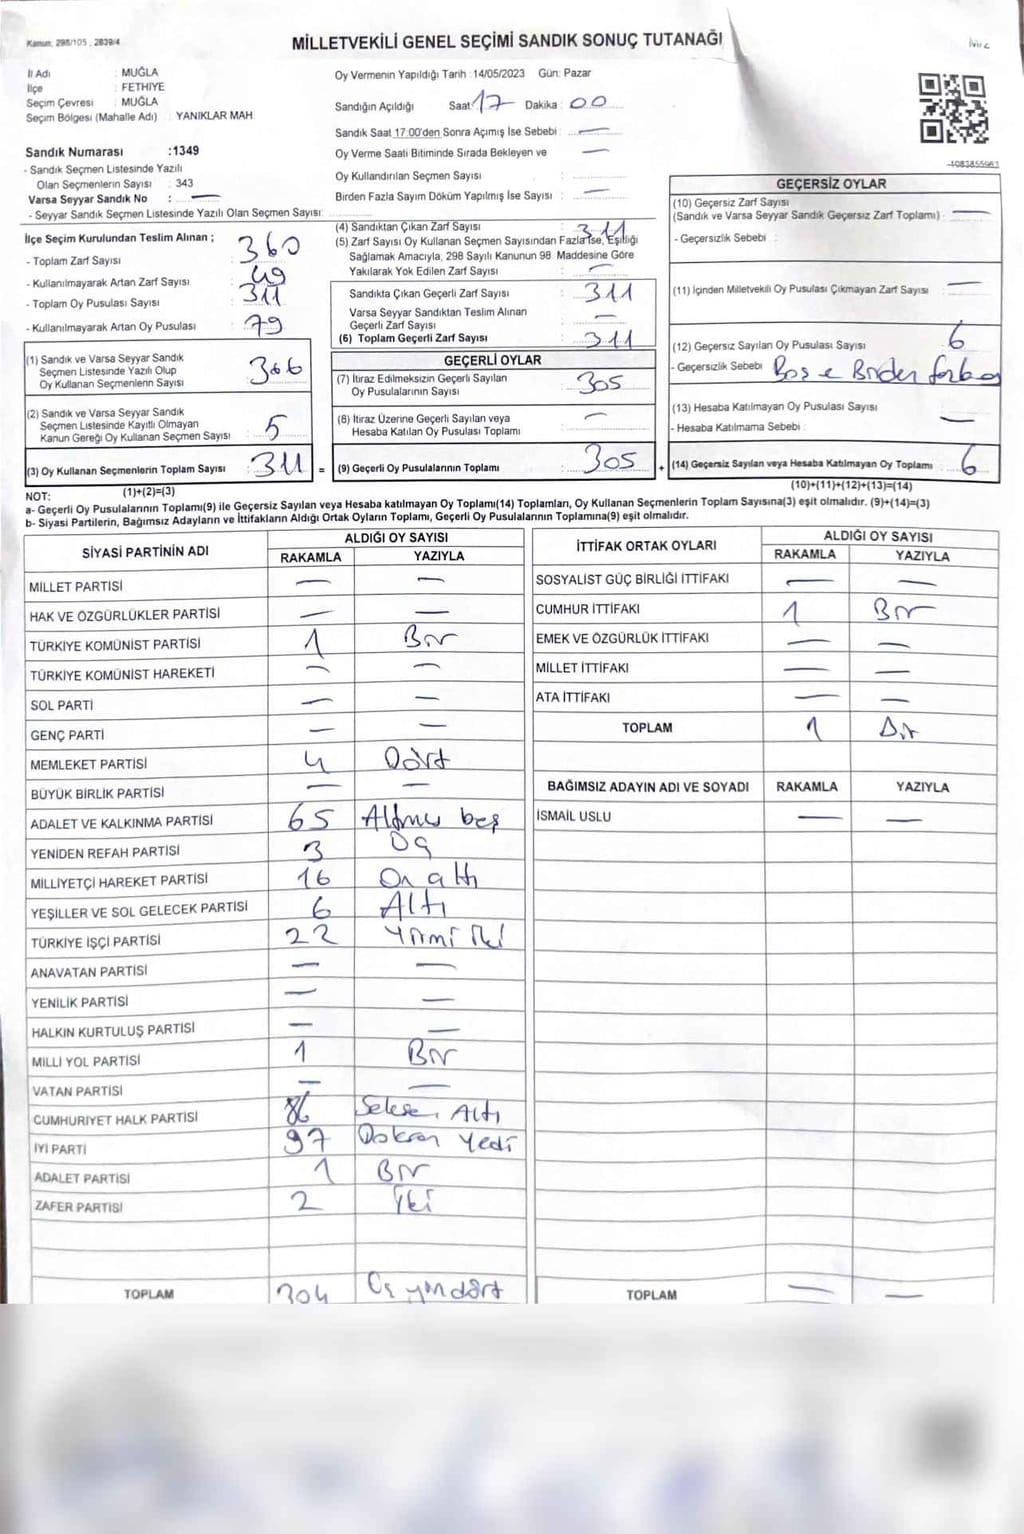 Kanun, 298/105 , 2839/4
MİLLETVEKİLİ GENEL SEÇİMİ SANDIK SONUÇ TUTANAĞI
İl Adı : MUĞLA
İlçe : FETHİYE
Seçim Çevresi : MUĞLA
Seçim Bölgesi (Mahalle Adı) : YANIKLAR MAH
Sandık Numarası :1349
- Sandık Seçmen Listesinde Yazılı
Olan Seçmenlerin Sayısı : 343
Varsa Seyyar Sandık No : —
- Seyyar Sandık Seçmen Listesinde Yazılı Olan Seçmen Sayısı:
Oy Vermenin Yapıldığı Tarih :14/05/2023 Gün: Pazar
Sandığın Açıldığı Saat: 17 Dakika : 00
Sandık Saat 17:00'den Sonra Açımış İse Sebebi : —
Oy Verme Saati Bitiminde Sırada Bekleyen ve —
Oy Kullandırılan Seçmen Sayısı :
Birden Fazla Sayım Döküm Yapılmış İse Sayısı : —
İlçe Seçim Kurulundan Teslim Alınan ;
- Toplam Zarf Sayısı : 360
- Kullanılmayarak Artan Zarf Sayısı : 49
- Toplam Oy Pusulası Sayısı : 311
- Kullanılmayarak Artan Oy Pusulası : 79
(1) Sandık ve Varsa Seyyar Sandık
Seçmen Listesinde Yazılı Olup
Oy Kullanan Seçmenlerin Sayısı : 306
(2) Sandık ve Varsa Seyyar Sandık
Seçmen Listesinde Kayıtlı Olmayan
Kanun Gereği Oy Kullanan Seçmen Sayısı : 5
(3) Oy Kullanan Seçmenlerin Toplam Sayısı : 311 =
(1)+(2)=(3)
(4) Sandıktan Çıkan Zarf Sayısı : 311
(5) Zarf Sayısı Oy Kullanan Seçmen Sayısından Fazla İse, Eşitliği
Sağlamak Amacıyla, 298 Sayılı Kanunun 98 Maddesine Göre
Yakılarak Yok Edilen Zarf Sayısı : —
Sandıkta Çıkan Geçerli Zarf Sayısı : 311
Varsa Seyyar Sandıktan Teslim Alınan
Geçerli Zarf Sayısı : —
(6) Toplam Geçerli Zarf Sayısı : 311
GEÇERLİ OYLAR
(7) İtiraz Edilmeksizin Geçerli Sayılan
Oy Pusulalarının Sayısı : 305
(8) İtiraz Üzerine Geçerli Sayılan veya
Hesaba Katılan Oy Pusulası Toplamı : —
(9) Geçerli Oy Pusulalarının Toplamı : 305 +
1083855963
GEÇERSİZ OYLAR
(10) Geçersiz Zarf Sayısı
(Sandık ve Varsa Seyyar Sandık Geçersiz Zarf Toplamı) : —
- Geçersizlik Sebebi :
(11) İçinden Milletvekili Oy Pusulası Çıkmayan Zarf Sayısı : —
(12) Geçersiz Sayılan Oy Pusulası Sayısı : 6
- Geçersizlik Sebebi : Boş
(13) Hesaba Katılmayan Oy Pusulası Sayısı :
- Hesaba Katılmama Sebebi : —
(14) Geçersiz Sayılan veya Hesaba Katılmayan Oy Toplamı : 6
(10)+(11)+(12)+(13)=(14)
NOT:
a- Geçerli Oy Pusulalarının Toplamı(9) ile Geçersiz Sayılan veya Hesaba katılmayan Oy Toplamı(14) Toplamları, Oy Kullanan Seçmenlerin Toplam Sayısına(3) eşit olmalıdır. (9)+(14)=(3)
b- Siyasi Partilerin, Bağımsız Adayların ve İttifakların Aldığı Ortak Oyların Toplamı, Geçerli Oy Pusulalarının Toplamına(9) eşit olmalıdır.
SİYASİ PARTİNİN ADI ALDIĞI OY SAYISI
RAKAMLA YAZIYLA
MİLLET PARTİSİ — —
HAK VE ÖZGÜRLÜKLER PARTİSİ — —
TÜRKİYE KOMÜNİST PARTİSİ 1 Bir
TÜRKİYE KOMÜNİST HAREKETİ — —
SOL PARTİ — —
GENÇ PARTİ — —
MEMLEKET PARTİSİ 4 Dört
BÜYÜK BİRLİK PARTİSİ — —
ADALET VE KALKINMA PARTİSİ 65 Altmış beş
YENİDEN REFAH PARTİSİ 3 Üç
MİLLİYETÇİ HAREKET PARTİSİ 16 On altı
YEŞİLLER VE SOL GELECEK PARTİSİ 6 Altı
TÜRKİYE İŞÇİ PARTİSİ 22 Yirmi iki
ANAVATAN PARTİSİ — —
YENİLİK PARTİSİ — —
HALKIN KURTULUŞ PARTİSİ — —
MİLLİ YOL PARTİSİ 1 Bir
VATAN PARTİSİ — —
CUMHURİYET HALK PARTİSİ 86 Seksen Altı
İYİ PARTİ 97 Doksan Yedi
ADALET PARTİSİ 1 Bir
ZAFER PARTİSİ 2 İki
TOPLAM 304 Üç yüz dört
İTTİFAK ORTAK OYLARI ALDIĞI OY SAYISI
RAKAMLA YAZIYLA
SOSYALİST GÜÇ BİRLİĞİ İTTİFAKI — —
CUMHUR İTTİFAKI 1 Bir
EMEK VE ÖZGÜRLÜK İTTİFAKI — —
MİLLET İTTİFAKI — —
ATA İTTİFAKI — —
TOPLAM 1 Bir
BAĞIMSIZ ADAYIN ADI VE SOYADI RAKAMLA YAZIYLA
İSMAİL USLU — —
TOPLAM — —